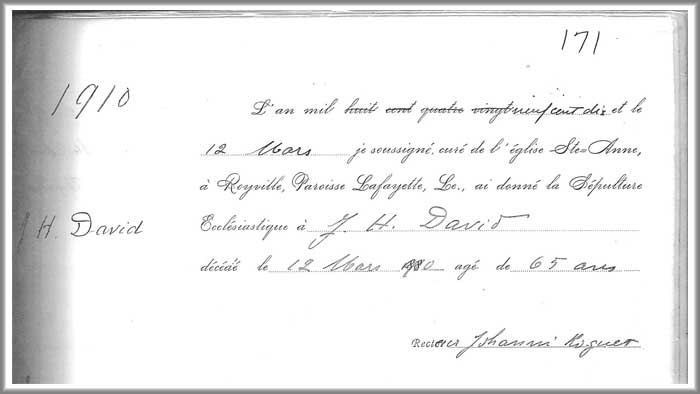 171
1910
L'an mil huit cent quatre vingt neuf cent dix et le
12 Mars je soussigné, curé de l'église Ste-Anne,
à Royville, Paroisse Lafayette, Le., ai donné la Sépulture
J H. David
Ecclésiastique à J. H. David
décédé le 12 Mars 1910 agé de 65 ans
Recteur Johanni Roguet